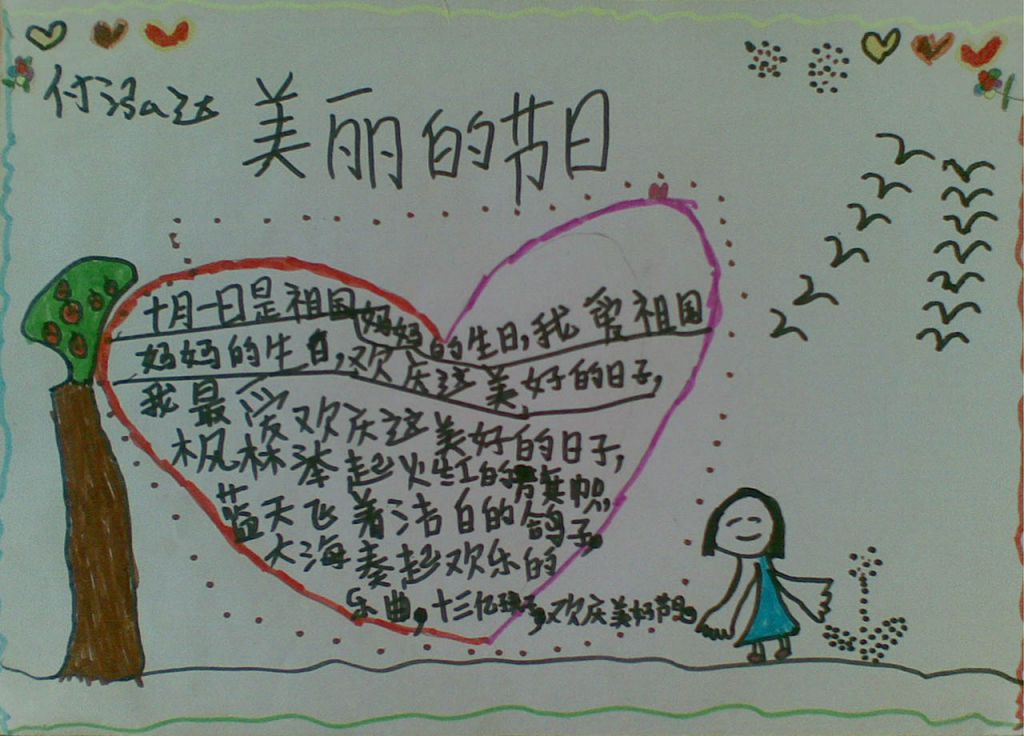 付泓达
美丽的节日
十月一日是祖国妈妈的生日,我爱祖国
妈妈的生日,欢庆这美好的日子,
我最爱欢庆这美好的日子,
枫林捧起火红的旗帜,
蓝天飞着洁白的鸽子,
大海奏起欢乐的
乐曲,十三亿孩子,欢庆美好节日。